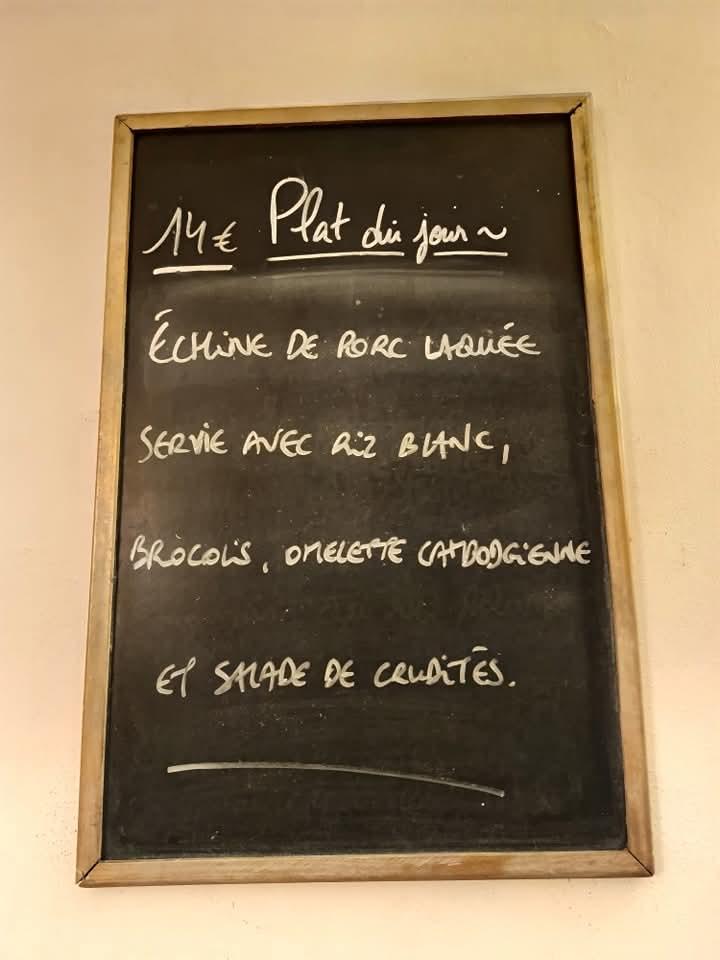 14€ Plat du jour ~
ÉCHINE DE PORC LAQUÉE
SERVIE AVEC RIZ BLANC,
BROCOLIS, OMELETTE CAMBODGIENNE
ET SALADE DE CRUDITÉS.